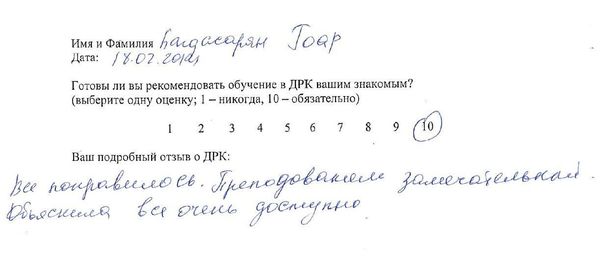 Имя и Фамилия Багдасарян Гоар
Дата: 18.02.2014
Готовы ли вы рекомендовать обучение в ДРК вашим знакомым?
(выберите одну оценку; 1 – никогда, 10 – обязательно)
1 2 3 4 5 6 7 8 9 10
Ваш подробный отзыв о ДРК:
Все понравилось. Преподаватель замечательный.
Объяснила все очень доступно